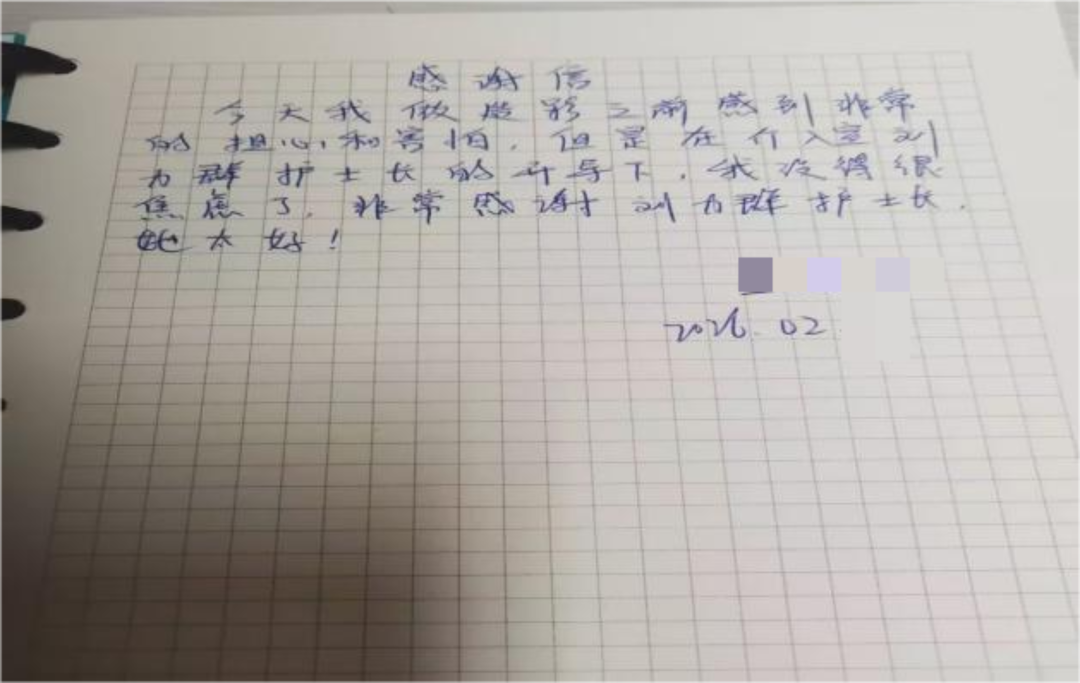 感谢信
今天我做造影之前感到非常
的担心和害怕，但是在介入室刘
为群护士长的开导下，我没得很
焦虑了，非常感谢刘为群护士长，
她太好！
2026.02